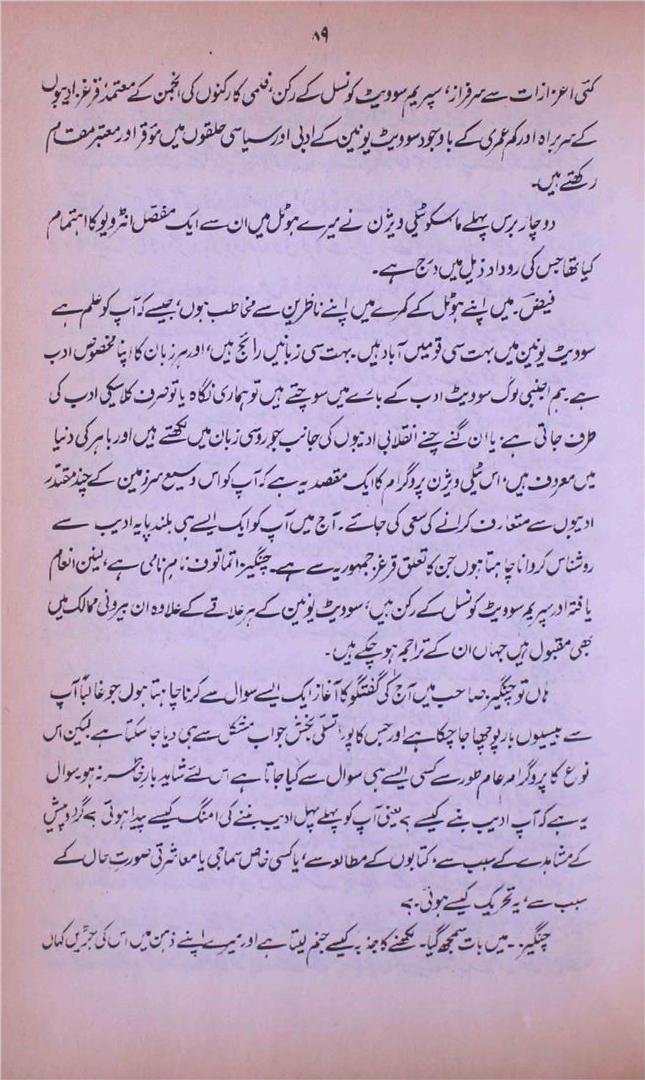 ۸۹
کئی اعزازات سے سرفراز، سپریم سوویٹ کونسل کے رکن، فلمی کارکنوں کی انجمن کے معتمد، قرغز ادیبوں
کے سربراہ اور کم عمری کے باوجود سوویٹ یونین کے ادبی اور سیاسی حلقوں میں مؤقر اور معتبر مقام
رکھتے ہیں۔
دو چار برس پہلے ماسکو ٹیلی ویژن نے میرے ہوٹل میں ان سے ایک مفصّل انٹرویو کا اہتمام
کیا تھا جس کی روداد ذیل میں درج ہے۔
فیض۔ میں اپنے ہوٹل کے کمرے میں اپنے ناظرین سے مخاطب ہوں، جیسے کہ آپ کو علم ہے
سوویٹ یونین میں بہت سی قومیں آباد ہیں۔ بہت سی زبانیں رائج ہیں، اور ہر زبان کا اپنا مخصوص ادب
ہے۔ ہم اجنبی لوگ سوویٹ ادب کے بارے میں سوچتے ہیں تو ہماری نگاہ یا تو صرف کلاسیکی ادب کی
طرف جاتی ہے، یا ان گنے چنے انقلابی ادیبوں کی جانب جو روسی زبان میں لکھتے ہیں اور باہر کی دنیا
میں معروف ہیں، اس ٹیلی ویژن پروگرام کا ایک مقصد یہ ہے کہ آپ کو اس وسیع سرزمین کے چند مقتدر
ادیبوں سے متعارف کرانے کی سعی کی جائے۔ آج میں آپ کو ایک ایسے ہی بلند پایہ ادیب سے
روشناس کروانا چاہتا ہوں جن کا تعلق قرغز جمہوریہ سے ہے۔ چنگیز اتماتوف نام نامی ہے، لینن انعام
یافتہ اور سپریم سوویٹ کونسل کے رکن ہیں، سوویٹ یونین کے ہر علاقے کے علاوہ ان بیرونی ممالک میں
بھی مقبول ہیں جہاں ان کے تراجم ہو چکے ہیں۔
ہاں تو چنگیز صاحب میں آج کی گفتگو کا آغاز ایک ایسے سوال سے کرنا چاہتا ہوں جو غالباً آپ
سے بیسیوں بار پوچھا جا چکا ہے اور جس کا پورا تسلّی بخش جواب مشکل سے ہی دیا جا سکتا ہے لیکن اس
نوع کا پروگرام عام طور سے کسی ایسے ہی سوال سے کیا جاتا ہے اس لئے شاید بار خاطر نہ ہو۔ سوال
یہ ہے کہ آپ ادیب بنے کیسے؟ یعنی آپ کو پہلے پہل ادیب بننے کی امنگ کیسے پیدا ہوئی؟ گرد و پیش
کے مشاہدے کے سبب سے، کتابوں کے مطالعہ سے، یا کسی خاص سماجی یا معاشرتی صورتِ حال کے
سبب سے، یہ تحریک کیسے ہوئی۔؟
چنگیز۔ میں بات سمجھ گیا۔ لکھنے کا جذبہ کیسے جنم لیتا ہے اور میرے اپنے ذہن میں اس کی جڑیں کہاں